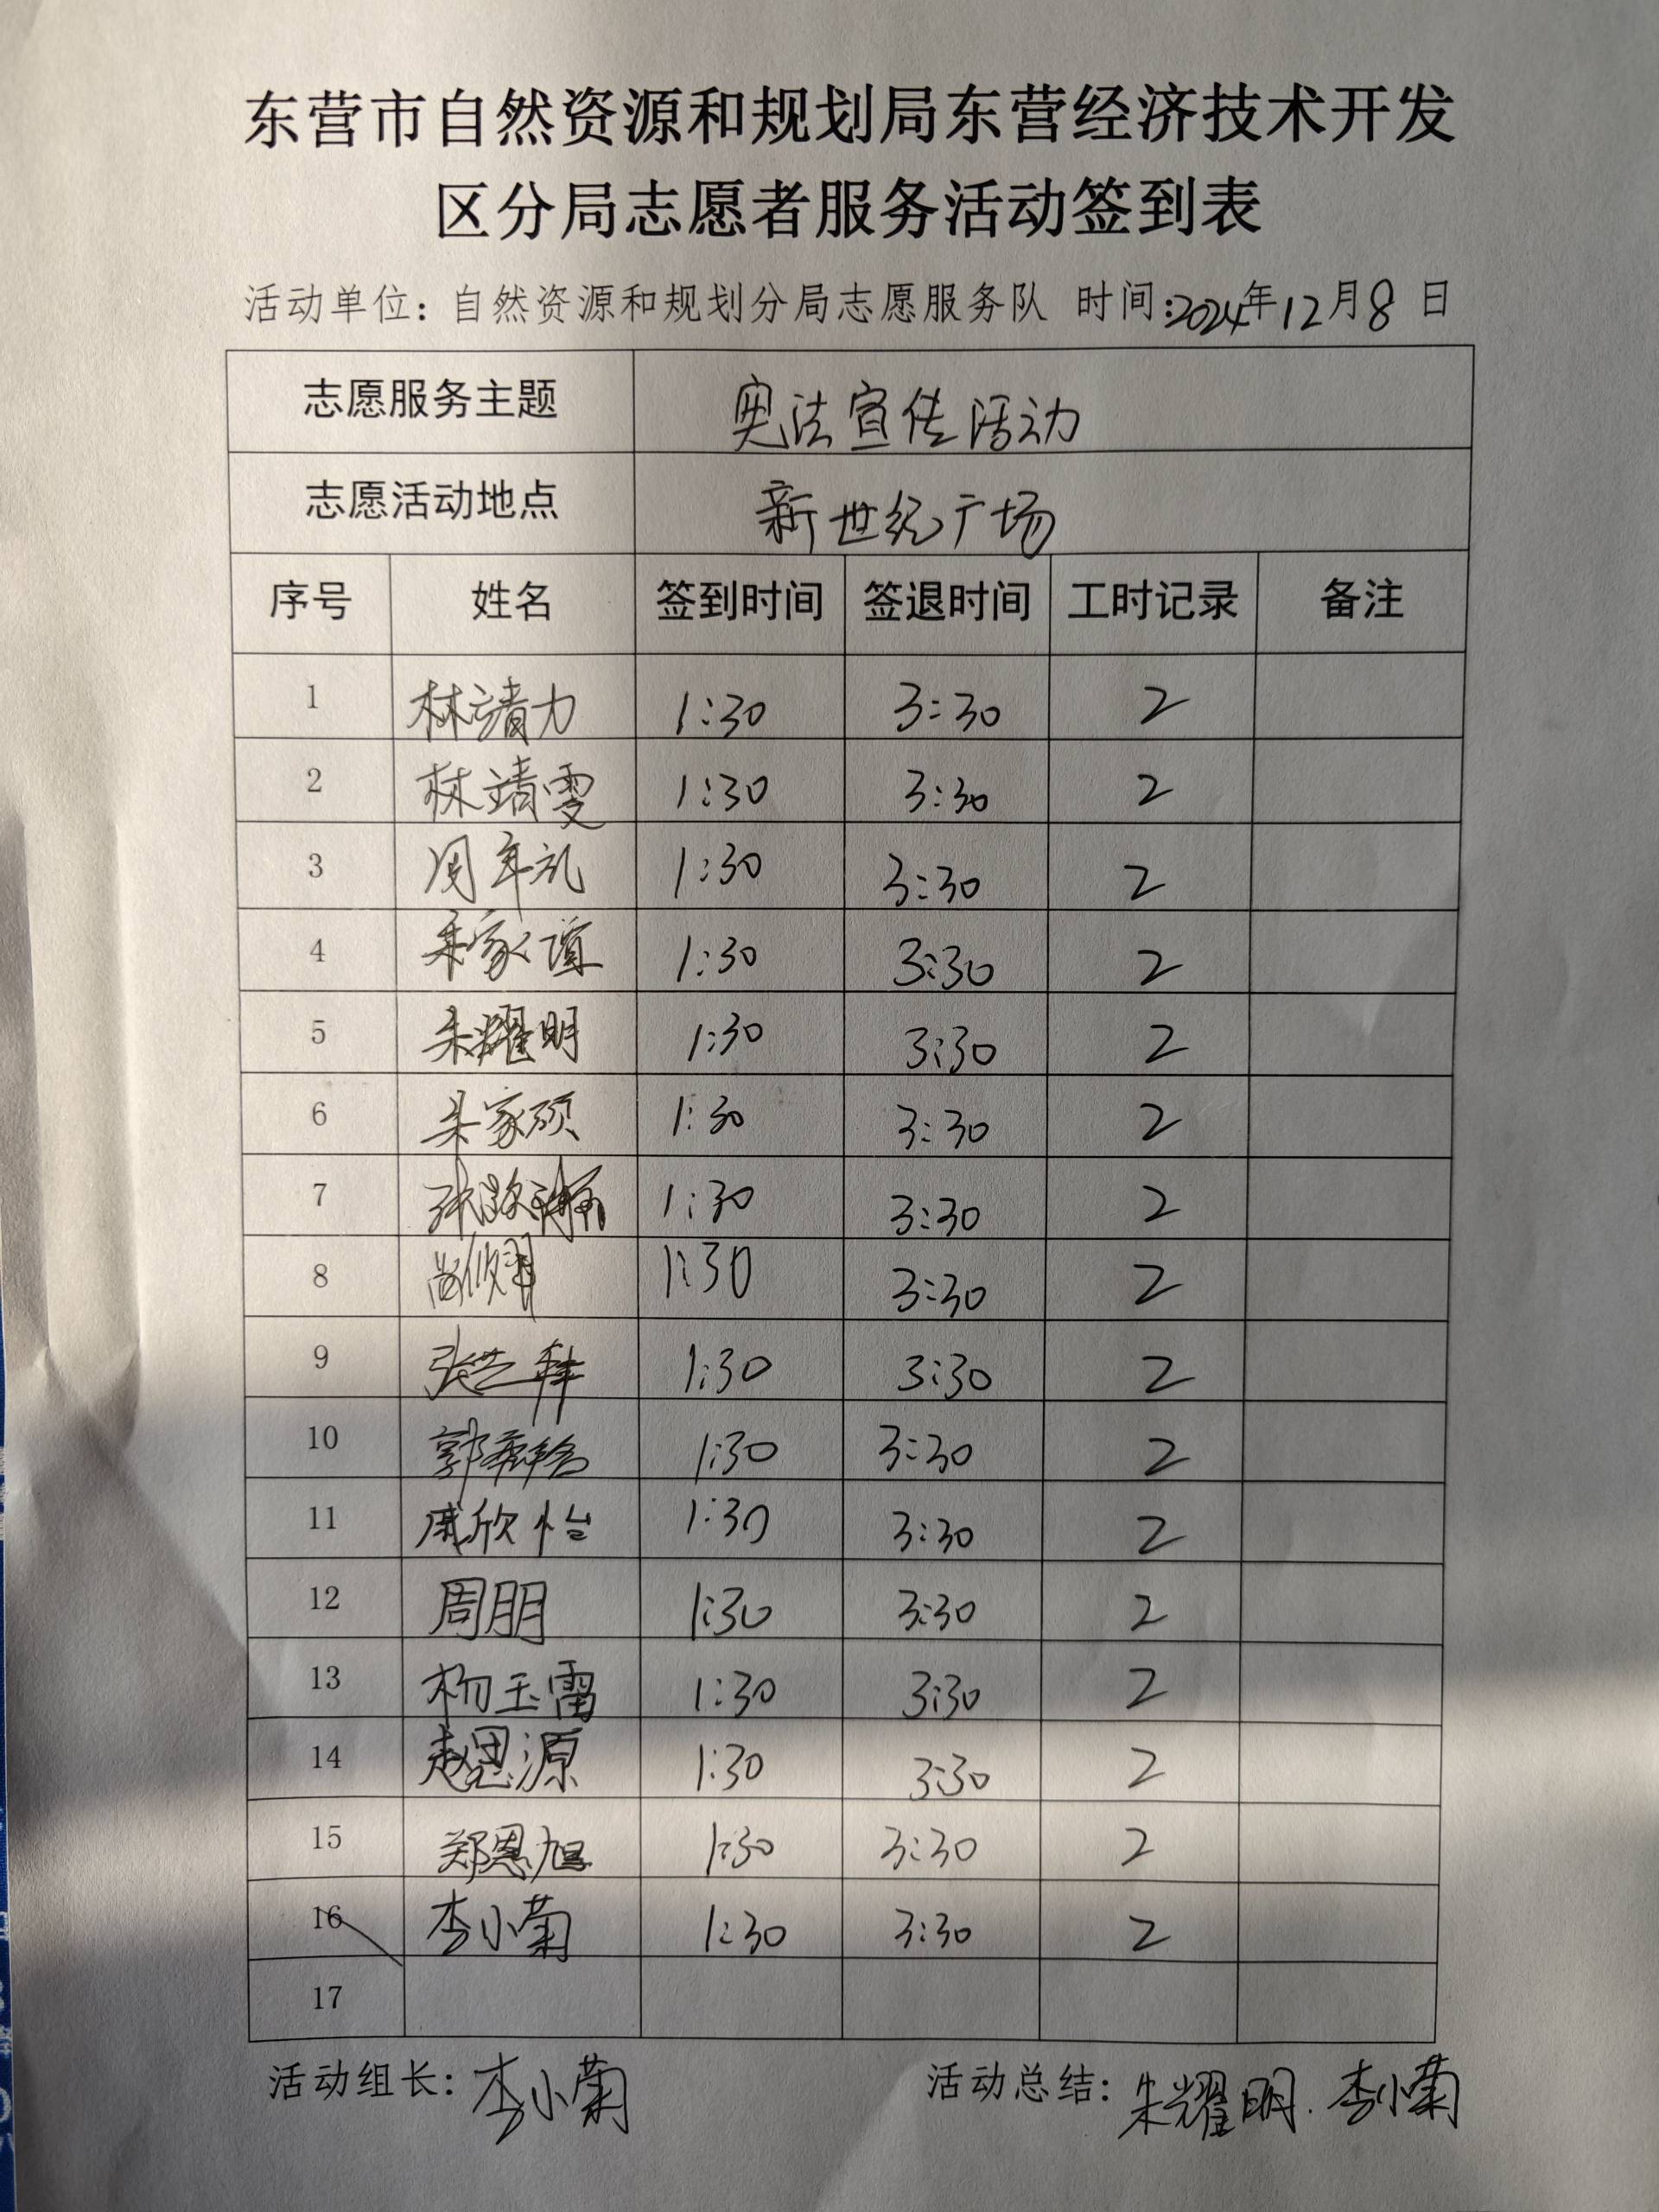 东营市自然资源和规划局东营经济技术开发
区分局志愿者服务活动签到表
活动单位：自然资源和规划分局志愿服务队 时间：2024年12月8日
志愿服务主题 宪法宣传活动
志愿活动地点 新世纪广场
序号 姓名 签到时间 签退时间 工时记录 备注
1 林靖力 1:30 3:30 2
2 林靖雯 1:30 3:30 2
3 周年礼 1:30 3:30 2
4 朱家谊 1:30 3:30 2
5 朱耀明 1:30 3:30 2
6 朱家硕 1:30 3:30 2
7 1:30 3:30 2
8 1:30 3:30 2
9 张艺馨 1:30 3:30 2
10 1:30 3:30 2
11 戚欣怡 1:30 3:30 2
12 周朋 1:30 3:30 2
13 杨玉雷 1:30 3:30 2
14 赵思源 1:30 3:30 2
15 郑恩旭 1:30 3:30 2
16 李小菊 1:30 3:30 2
17
活动组长：李小菊 活动总结：朱耀明. 李小菊